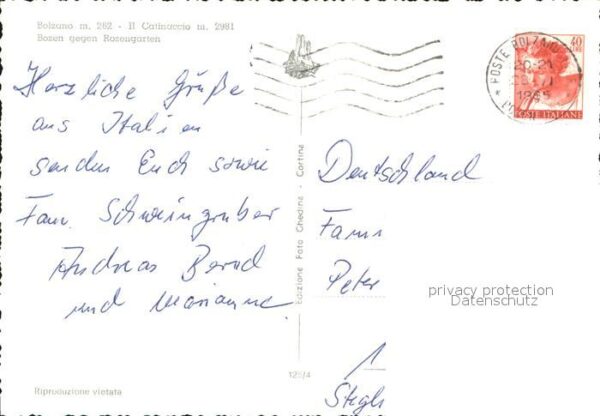 Bolzano m. 262 - Il Catinaccio m. 2981
Bozen gegen Rosengarten
Herzliche Grüße
aus Italien
senden Euch sowie
Fam. Schweingruber
Andreas Bernd
und Marianne.
Edizione Foto Ghedina - Cortina
125/4
Riproduzione vietata
POSTE BOLZANO
20-21
1965
40
POSTE ITALIANE
Deutschland
Fami
Peter
privacy protection
Datenschutz